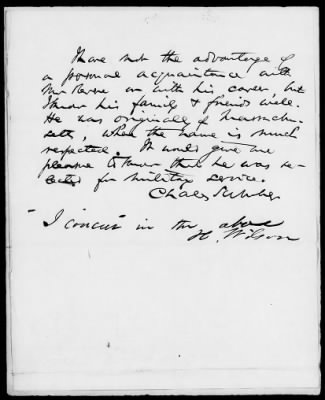 I have not the advantage of
a personal acquaintance with
Mr. or with his career, but
I know his family & friends well.
He was originally of Massachu-
setts, where the name is much
respected. It would give me
pleasure to know that he was se-
lected for military service.
Charles Sumner
"I concur" in the above
H. Wilson